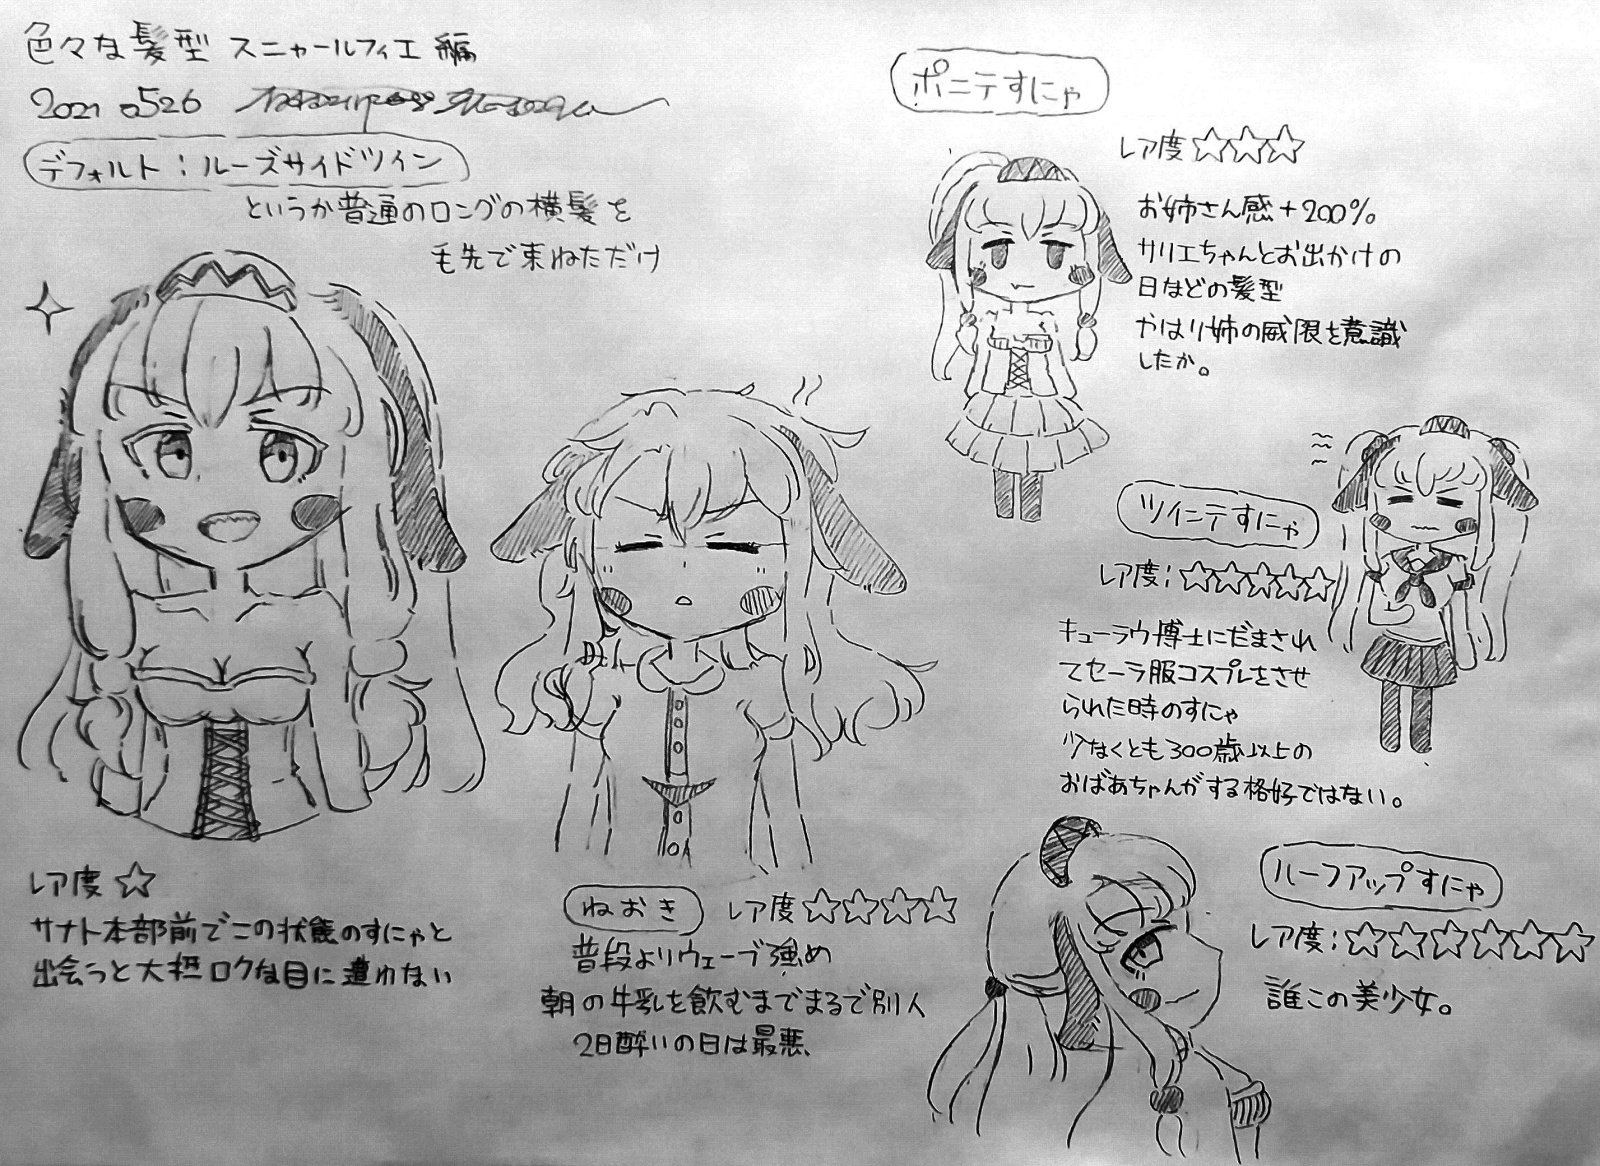 色々な髪型 スニャールフィエ編
2021 0526
デフォルト:ルーズサイドツイン
というか普通のロングの横髪を
毛先で束ねただけ
レア度 ☆
サナト本部前でこの状態のすにゃと
出会うと大抵ロクな目に遭わない
ねおき
レア度☆☆☆☆
普段よりウェーブ強め
朝の牛乳を飲むまでまるで別人
2日酔いの日は最悪、
ポニテすにゃ
レア度☆☆☆
お姉さん感+200%
サリエちゃんとお出かけの
日などの髪型
やはり姉の威厳を意識
したか。
ツインテすにゃ
レア度:☆☆☆☆☆
キューラウ博士にだまされ
てセーラ服コスプレをさせ
られた時のすにゃ
少なくとも300歳以上の
おばあちゃんがする格好ではない。
ルーフアップすにゃ
レア度:☆☆☆☆☆☆
誰この美少女。